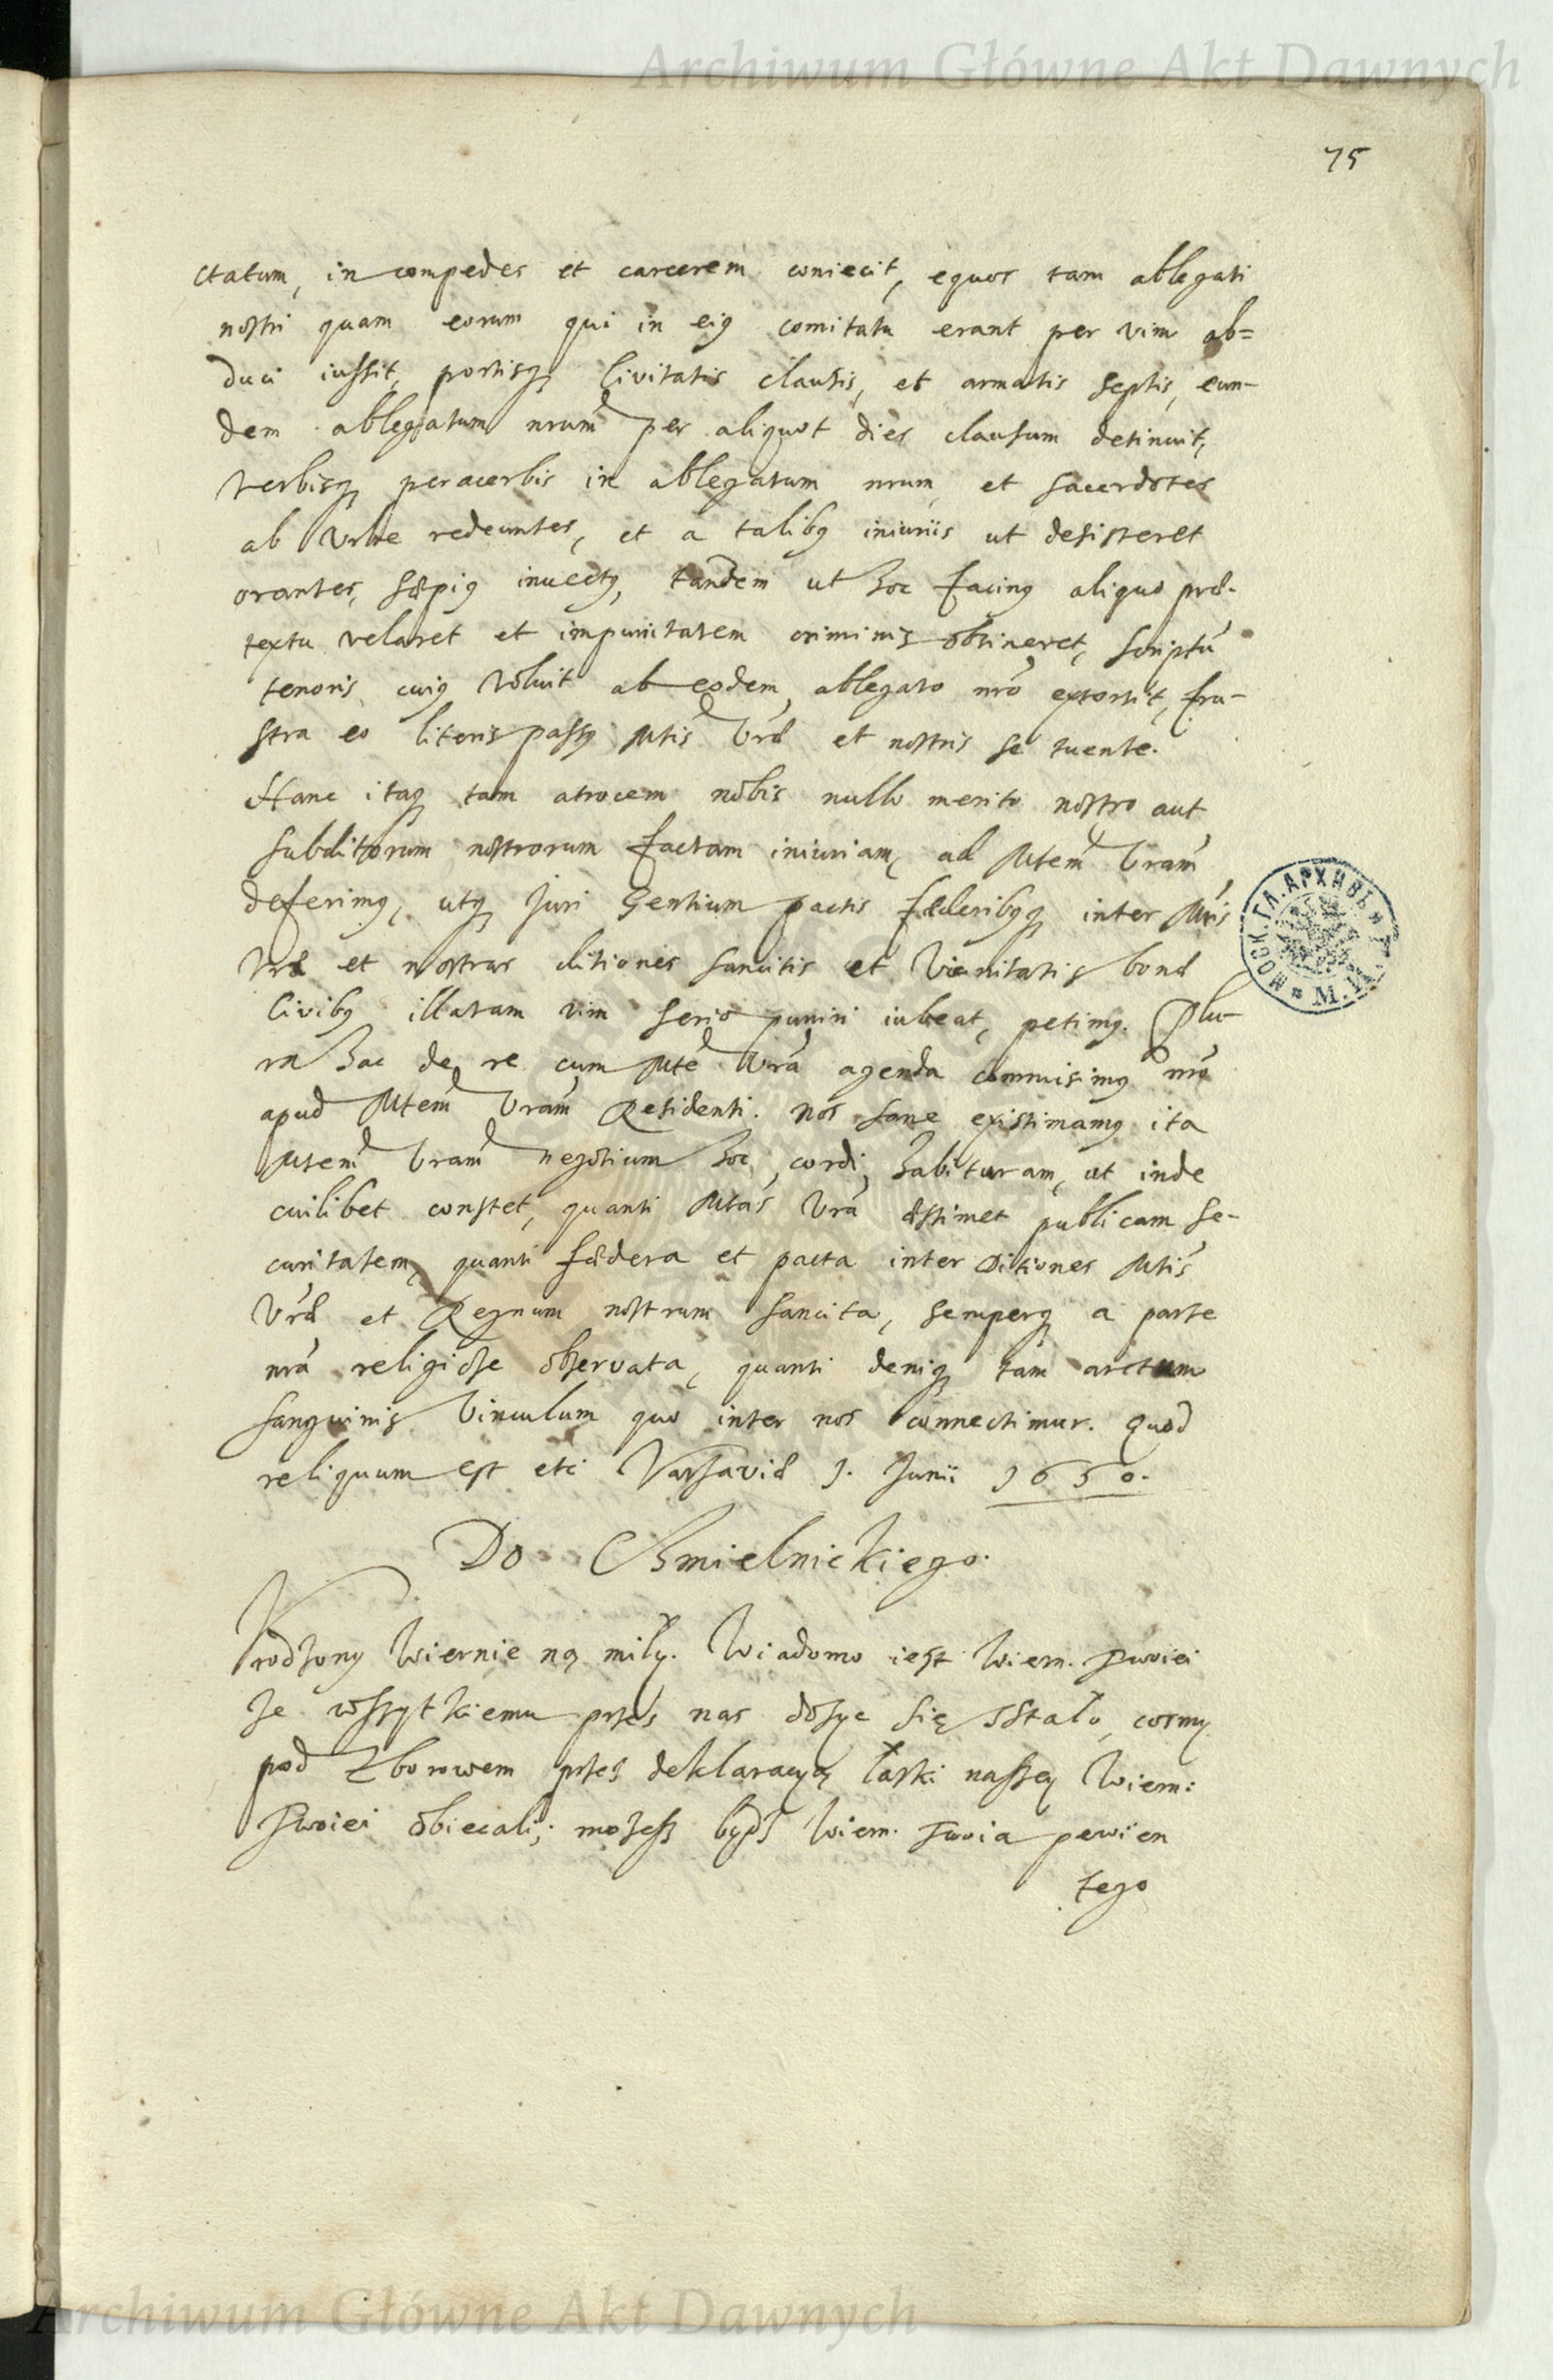 Archiwum Główne Akt Dawnych
75
ctatum, in compedes et carcerem coniecit, equos tam ablegati
nostri quam eorum qui in eiq comitatu erant per vim ab=
duci iussit, portisq Civitatis clausis, et armatis septis, eun-
dem ablegatum nrum per aliquot dies clausum detinuit,
verbisq peracerbis in ablegatum nrum, et sacerdotes
ab Urbe redeuntes, et a talibq iniuriis ut desisteret
orantes, sæpiq inuectq, tandem ut hoc facinq aliquo præ-
textu velaret et impunitatem criminis obtineret, scriptũ
tenoris cuiq voluit ab eodem ablegato nro extorsit, fru-
stra eo literis passq Mtis Vræ et nostris se tuente.
Hanc itaq tam atrocem nobis nullo merito nostro aut
subditorum nostrorum factam iniuriam, ad Mtem Vram
deferimq, utq Juri Gentium pactis fæderibqq inter Mtis
Vræ et nostras ditiones sancitis et Vicinitatis bonæ
Civibq illatam vim serio puniri iubeat, petimq. Plu-
ra hac de re cum Mte Vra agenda commisimq nro
apud Mtem Vram Residenti. Nos sane existimamq ita
Mtem Vram negotium hoc cordi habituram, ut inde
cuilibet constet, quanti Mtas Vra æstimet publicam se-
curitatem, quanti fædera et pacta inter Ditiones Mtis
Vræ et Regnum nostrum sancita, semperq a parte
nra religiose observata, quanti deniq tam arctum
sanguinis Vinculum quo inter nos connectimur. Quod
reliquum est etc Varsaviæ 1. Junii 1650.
Do Chmielnickiego.
Vrodzony Wiernie ną miły. Wiadomo iest Wiern. Twoiei
że wszytkiemu przes nas dosyc się sstało, cosmy
pod Zborowem przes deklaracyą łaski naszey Wiern:
Twoiei obiecali; mozesz bydz Wiern. Twoia pewien
tego
МОСК. ГЛ. АРХИВЪ * М. И. Д. *
Archiwum Główne Akt Dawnych